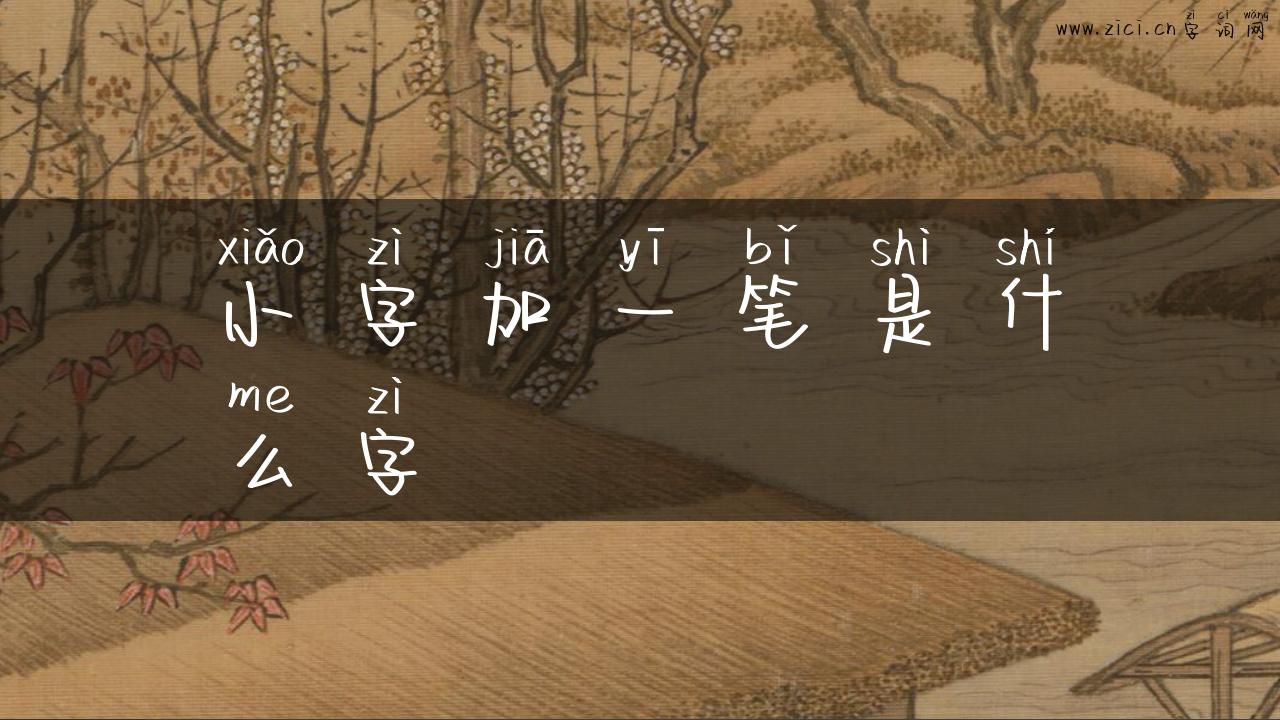 zì cí wǎng
www.zici.cn字词网
xiǎo zì jiā yī bǐ shì shí
小字加一笔是什
me zì
么字